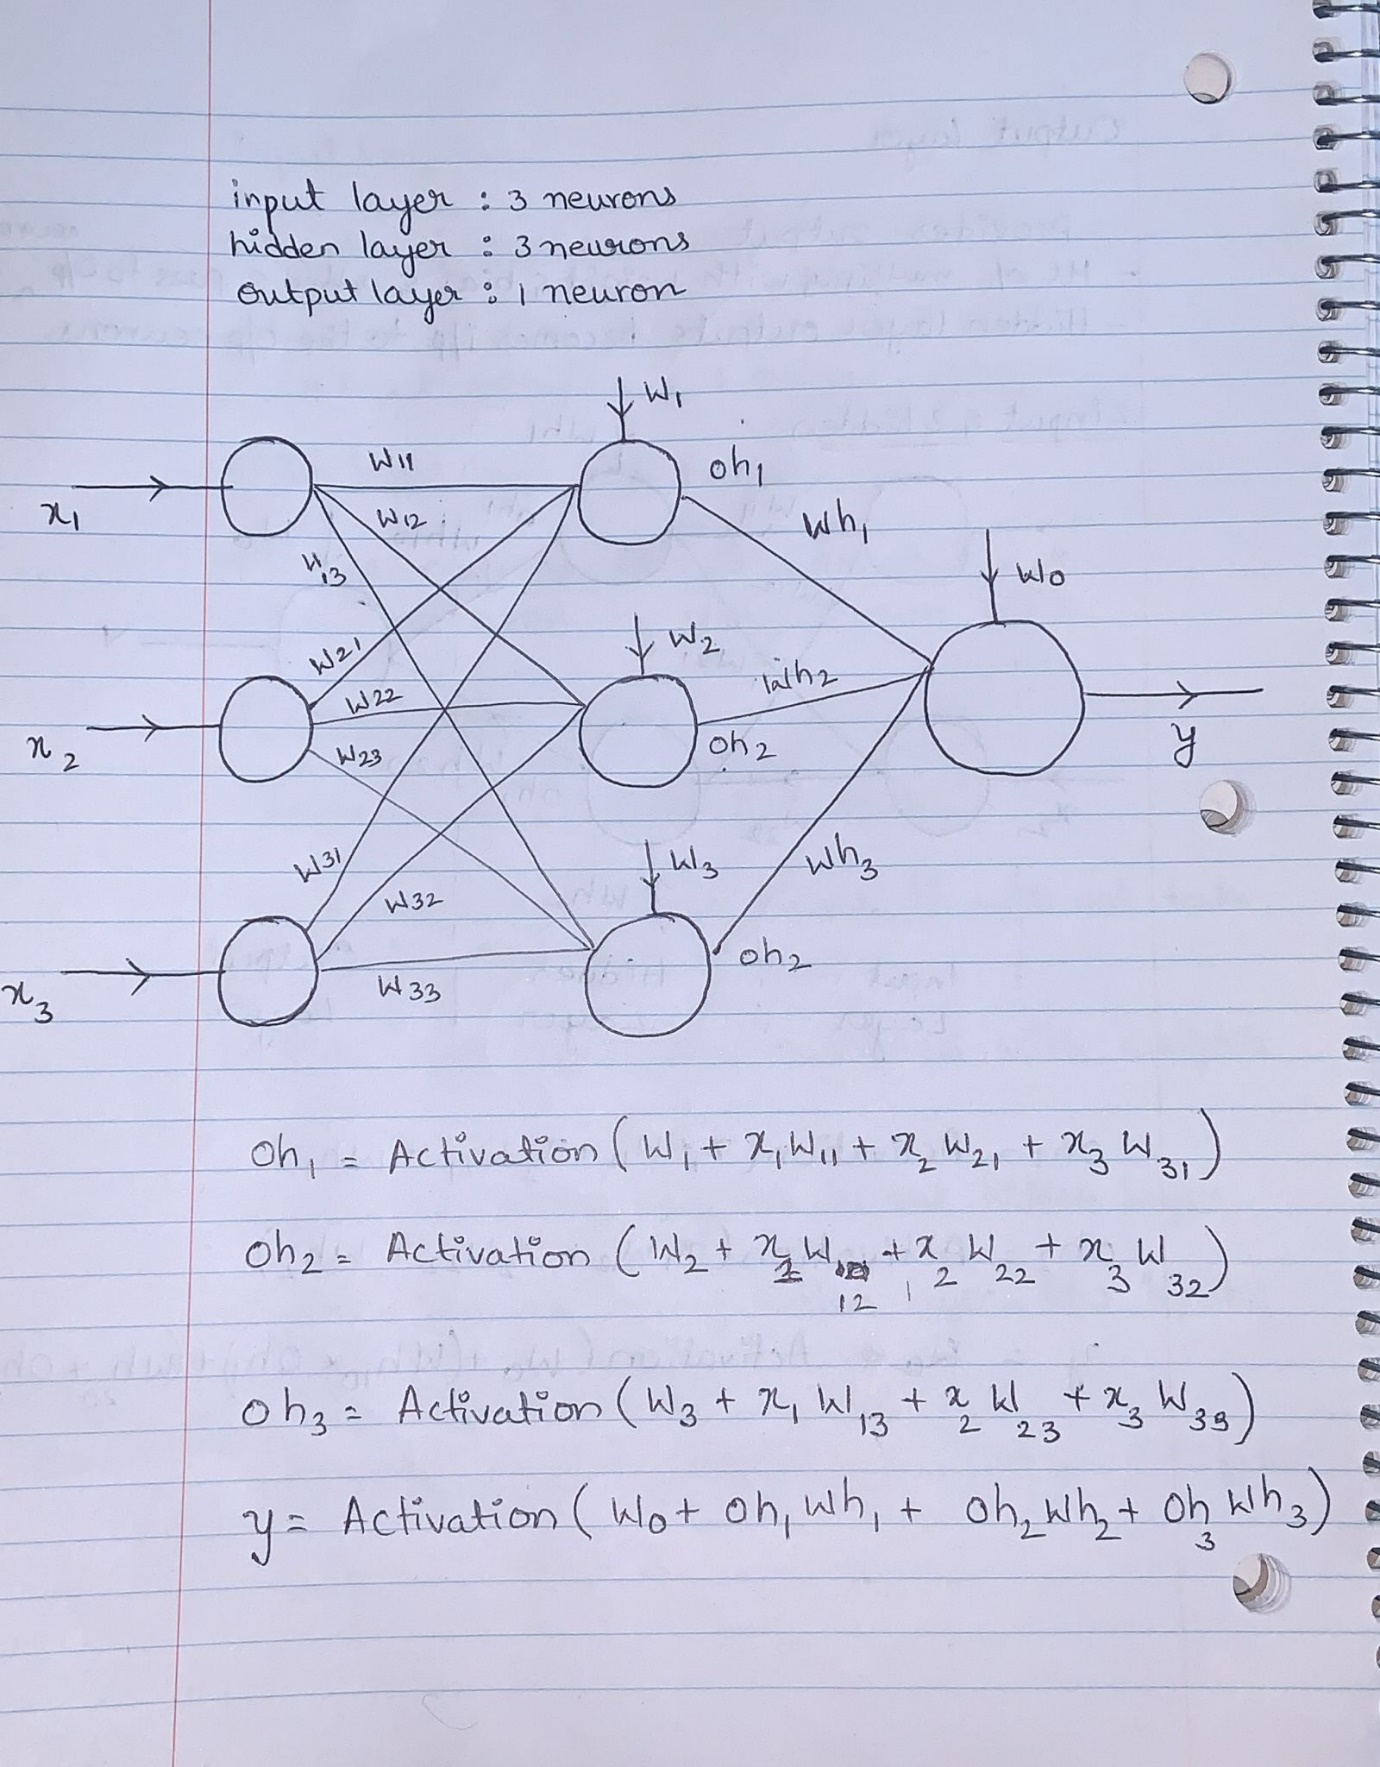 input layer : 3 neurons
hidden layer : 3 neurons
output layer : 1 neuron
W₁
x₁
W₁₁
W₁₂
W₁₃
oh₁
Wh₁
W₀
x₂
W₂₁
W₂₂
W₂₃
W₂
oh₂
Wh₂
y
x₃
W₃₁
W₃₂
W₃₃
W₃
oh₂
Wh₃
Oh₁ = Activation (W₁ + x₁W₁₁ + x₂ W₂₁ + x₃ W₃₁)
Oh₂ = Activation (W₂ + x W₁₂ + x₂ W₂₂ + x₃ W₃₂)
Oh₃ = Activation (W₃ + x₁ W₁₃ + x₂ W₂₃ + x₃ W₃₃)
y = Activation (W₀ + Oh₁ Wh₁ + Oh₂ Wh₂ + Oh₃ Wh₃)